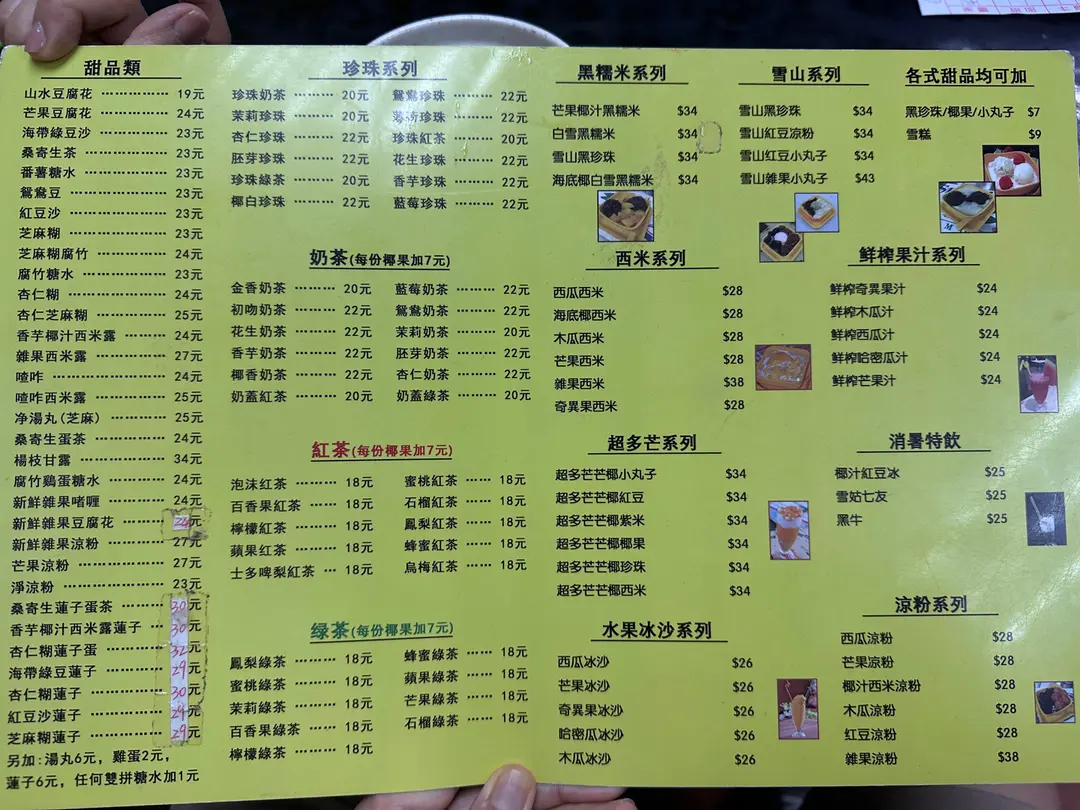 甜品類
山水豆腐花 19元
芒果豆腐花 24元
海帶綠豆沙 23元
桑寄生茶 23元
番薯糖水 23元
鴛鴦豆 23元
紅豆沙 23元
芝麻糊 23元
芝麻糊腐竹 24元
腐竹糖水 23元
杏仁糊 24元
杏仁芝麻糊 25元
香芋椰汁西米露 24元
雜果西米露 27元
喳咋 24元
喳咋西米露 25元
净湯丸(芝麻) 25元
桑寄生蛋茶 24元
楊枝甘露 34元
腐竹鷄蛋糖水 24元
新鮮雜果啫喱 24元
新鮮雜果豆腐花 24元
新鮮雜果涼粉 27元
芒果涼粉 27元
淨涼粉 23元
桑寄生蓮子蛋茶 30元
香芋椰汁西米露蓮子 30元
杏仁糊蓮子蛋 32元
海帶綠豆蓮子 29元
杏仁糊蓮子 30元
紅豆沙蓮子 29元
芝麻糊蓮子 29元
另加:湯丸6元，雞蛋2元，
蓮子6元，任何雙拼糖水加1元
珍珠系列
珍珠奶茶 20元 鴛鴦珍珠 22元
茉莉珍珠 20元 薄荷珍珠 22元
杏仁珍珠 22元 珍珠紅茶 20元
胚芽珍珠 22元 花生珍珠 22元
珍珠綠茶 20元 香芋珍珠 22元
椰白珍珠 22元 藍莓珍珠 22元
奶茶(每份椰果加7元)
金香奶茶 20元 藍莓奶茶 22元
初吻奶茶 22元 鴛鴦奶茶 22元
花生奶茶 22元 茉莉奶茶 20元
香芋奶茶 22元 胚芽奶茶 22元
椰香奶茶 22元 杏仁奶茶 22元
奶蓋紅茶 20元 奶蓋綠茶 20元
紅茶(每份椰果加7元)
泡沫红茶 18元 蜜桃紅茶 18元
百香果紅茶 18元 石榴紅茶 18元
檸檬紅茶 18元 鳳梨紅茶 18元
蘋果红茶 18元 蜂蜜紅茶 18元
士多啤梨紅茶 18元 烏梅紅茶 18元
绿茶(每份椰果加7元)
鳳梨綠茶 18元 蜂蜜綠茶 18元
蜜桃綠茶 18元 蘋果綠茶 18元
茉莉綠茶 18元 芒果綠茶 18元
百香果綠茶 18元 石榴綠茶 18元
檸檬綠茶 18元
黑糯米系列
芒果椰汁黑糯米 $34
白雪黑糯米 $34
雪山黑珍珠 $34
海底椰白雪黑糯米 $34
雪山系列
雪山黑珍珠 $34
雪山紅豆涼粉 $34
雪山红豆小丸子 $34
雪山雜果小丸子 $43
各式甜品均可加
黑珍珠/椰果/小丸子 $7
雪糕 $9
西米系列
西瓜西米 $28
海底椰西米 $28
木瓜西米 $28
芒果西米 $28
雜果西米 $38
奇異果西米 $28
鮮榨果汁系列
鮮榨奇異果汁 $24
鮮榨木瓜汁 $24
鮮榨西瓜汁 $24
鮮榨哈密瓜汁 $24
鮮榨芒果汁 $24
超多芒系列
超多芒芒椰小丸子 $34
超多芒芒椰紅豆 $34
超多芒芒椰紫米 $34
超多芒芒椰椰果 $34
超多芒芒椰珍珠 $34
超多芒芒椰西米 $34
消暑特飲
椰汁紅豆冰 $25
雪姑七友 $25
黑牛 $25
水果冰沙系列
西瓜冰沙 $26
芒果冰沙 $26
奇異果冰沙 $26
哈密瓜冰沙 $26
木瓜冰沙 $26
涼粉系列
西瓜涼粉 $28
芒果涼粉 $28
椰汁西米涼粉 $28
木瓜涼粉 $28
紅豆涼粉 $28
雜果涼粉 $38